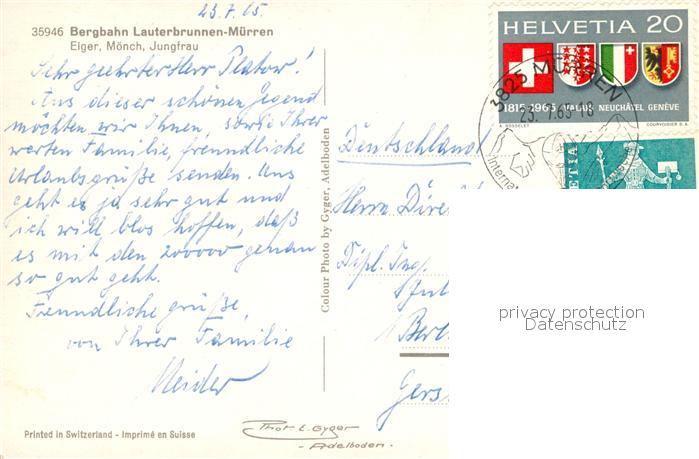 23.7.65
35946 Bergbahn Lauterbrunnen-Mürren
Eiger, Mönch, Jungfrau
Sehr geehrter Herr Platow!
Aus dieser schönen Gegend
möchten wir Ihnen, sowie Ihrer
werten Familie, freundliche
Urlaubsgrüße senden. Uns
geht es ja sehr gut und
ich will blos hoffen, daß
es mit den 200000 genau
so gut geht.
Freundliche grüße,
von Ihrer Familie
Printed in Switzerland - Imprimé en Suisse
Colour Photo by Gyger, Adelboden
Phot E. Gyger
- Adelboden -
HELVETIA 20
1815-1965 VALAIS NEUCHÂTEL GENÈVE
COURVOISIER S.A.
3825 MÜRREN
23.7.65-18
Internat
Deutschland
Herrn Dire
Dipl. Ing.
Berl
privacy protection
Datenschutz